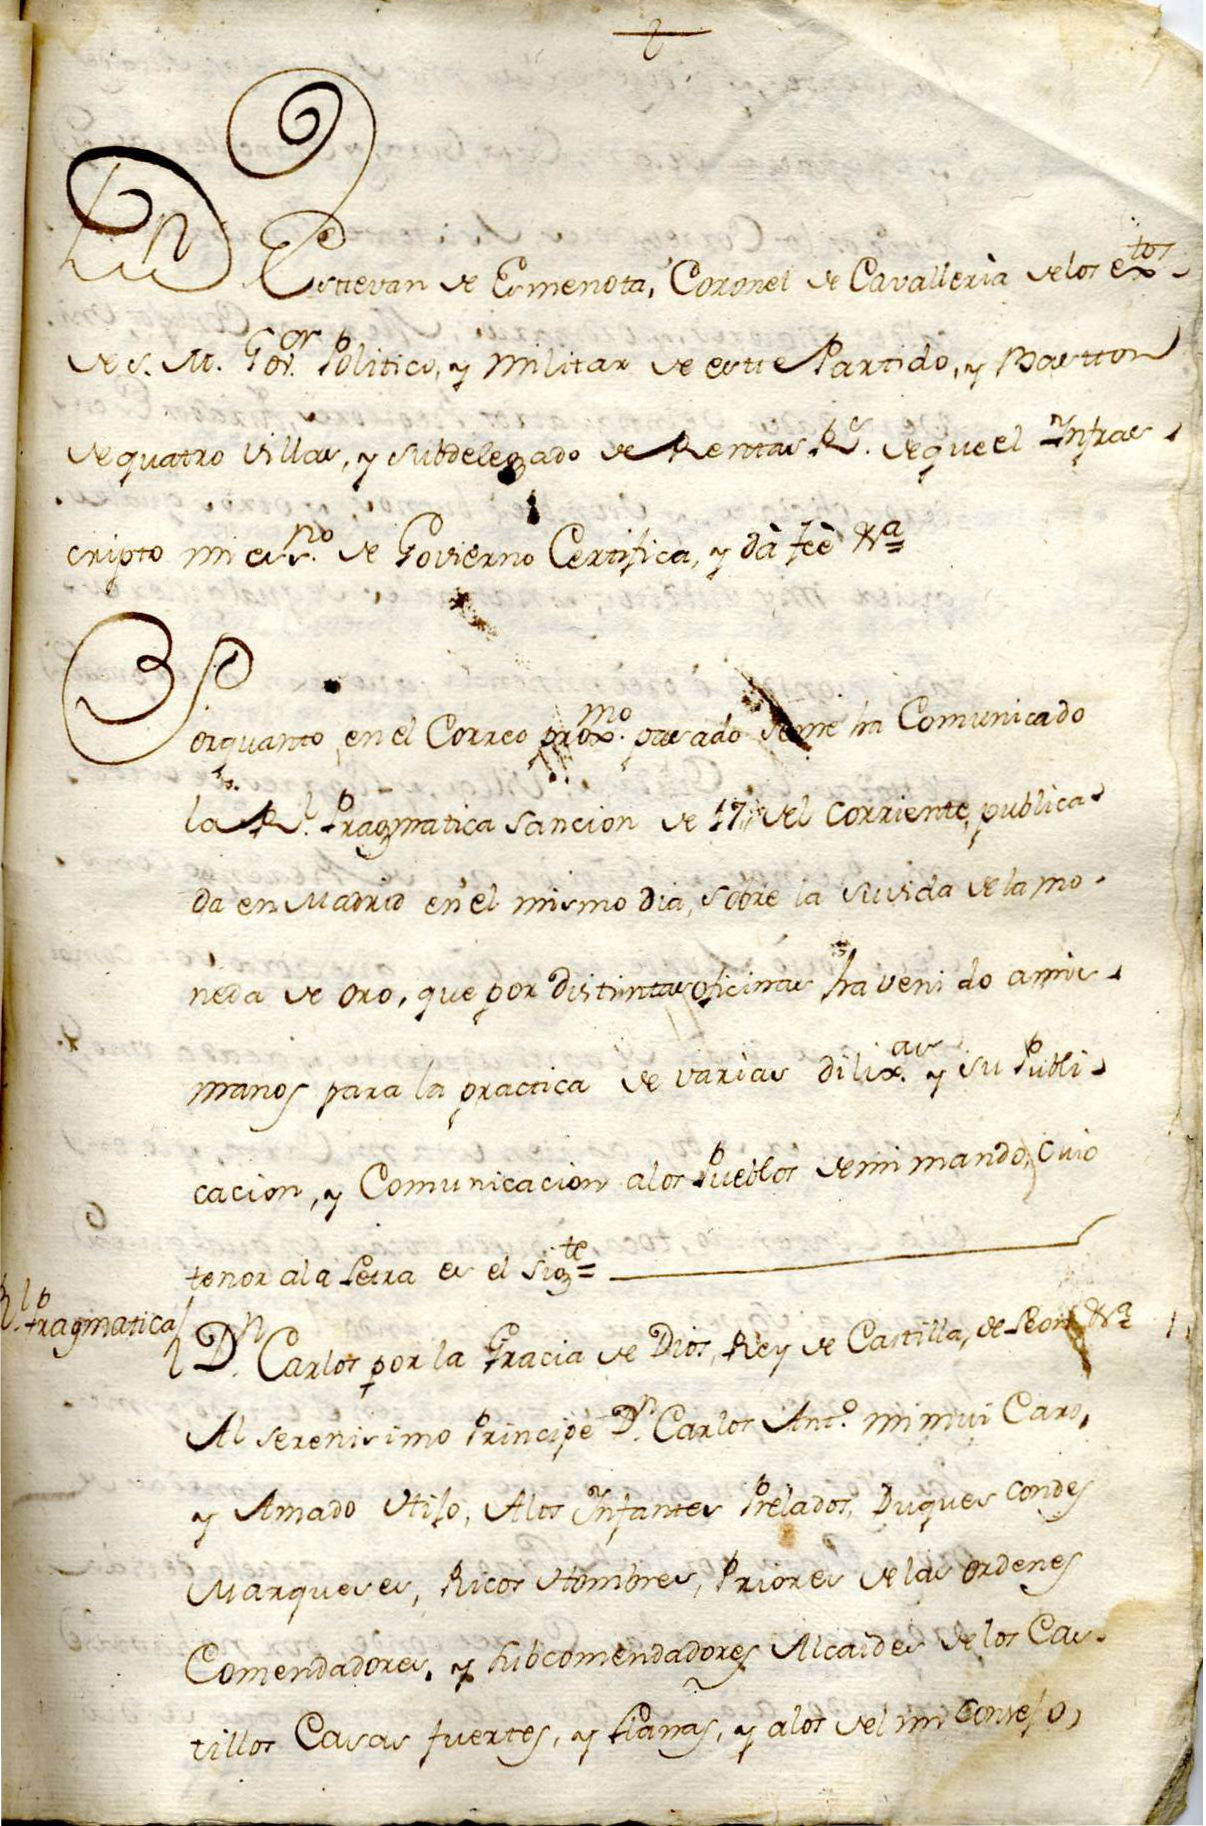 Dn Estevan de Esmenota, Coronel de Cavallerìa de los extos
de S. M. Govor. Politico, y Militar de este Partido, y Baston
de quatro Villas, y subdelegado de Rentas Rs. de que el Infras-
cripto mi essno. de Govierno Certifica, y dà feè &a=
Porquanto en el Correo proxmo. pasado seme ha Comunicado
la Rl. Pragmatica Sancion de 17, del corriente, publica-
da en Madrid en el mismo Dia, sobre la suvida de la mo-
neda de oro, que por distintas oficinas ha veni do a mis-
manos para la practica de varias dilixas. y su Publi-
cacion, y Comunicacion a los Pueblos de mi mando, cuio
tenor ala Letra es el sigte=
Rl. Pragmatica
Dn. Carlos por la Gracia de Dios, Rey de Castilla, de Leon &a
Al serenisimo Principe Dn. Carlos Anto. mi mui Caro,
y Amado Hijo, Alos Infantes Prelados, Duques Condes
Marqueses, Ricos Hombres, Priores de las ordenes
Comendadores, y Subcomendadores Alcaides de los Cas-
tillos Casas fuertes, y Llanas, y alos del mi Consejo,